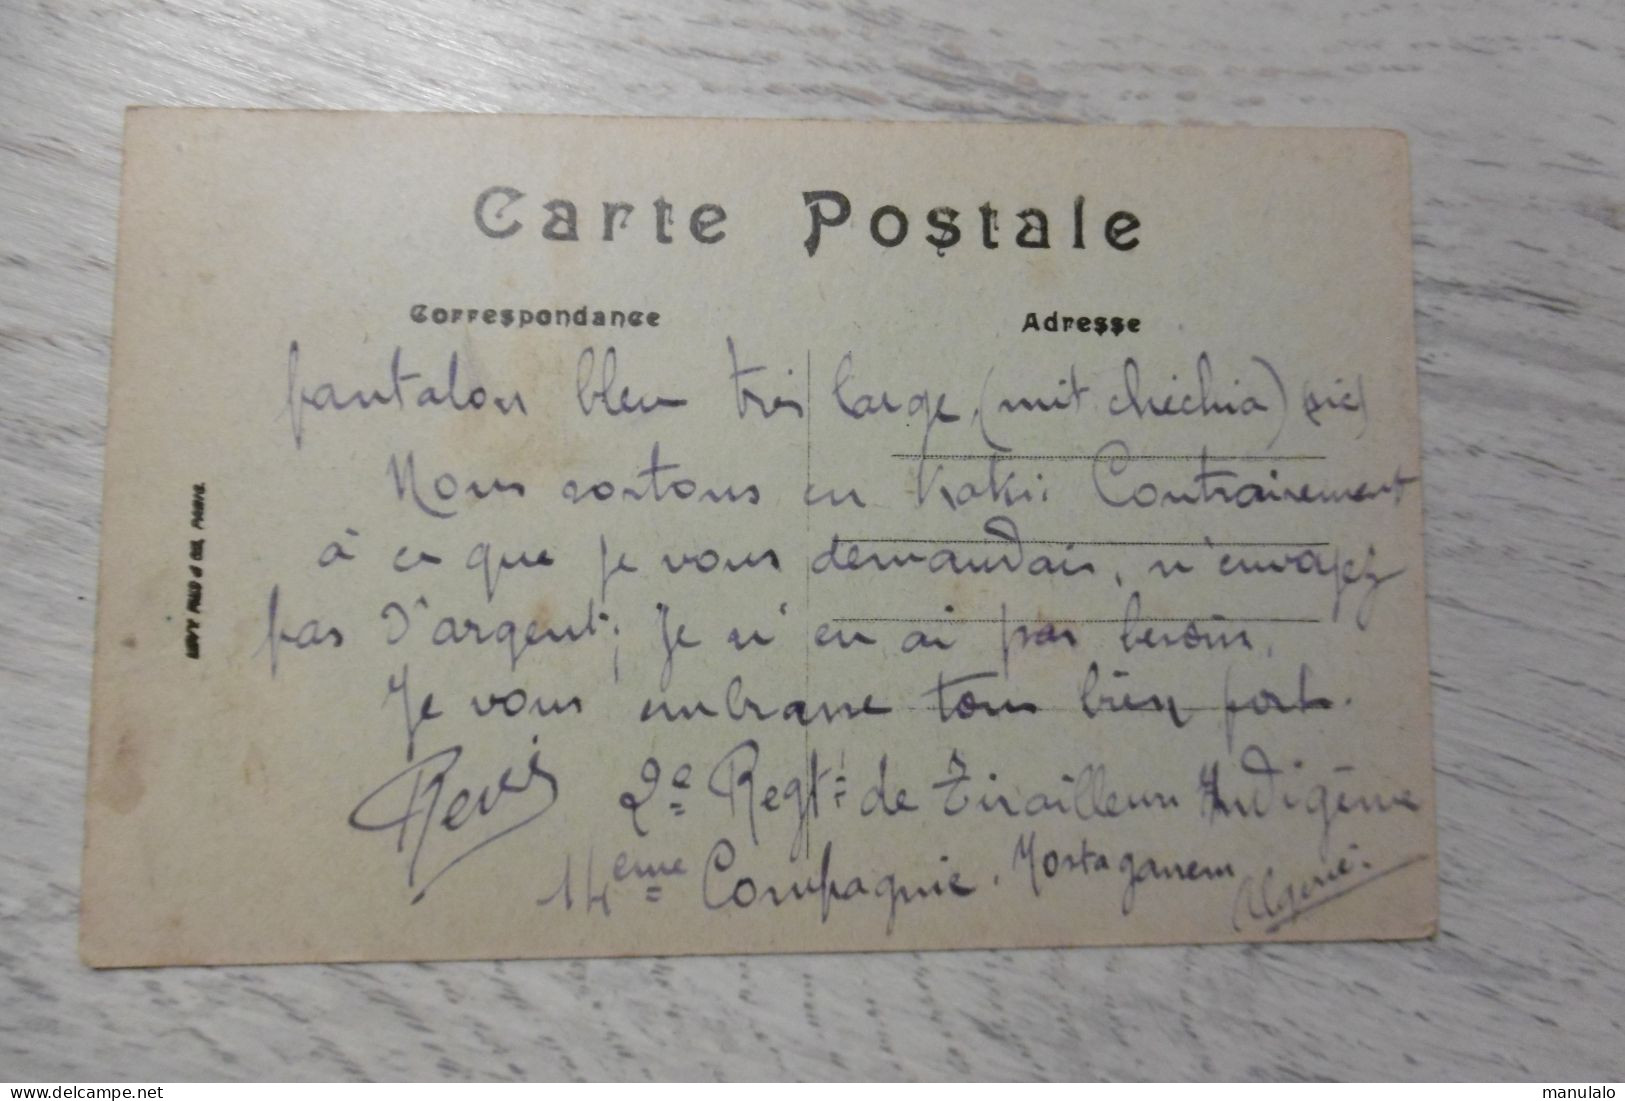 Carte Postale
Correspondance
Adresse
pantalon bleu très large, (mit chéchia) (sic)
Nous sortons en Kaki. Contrairement
à ce que je vous demandais, n'envoyez
pas d'argent; je n'en ai pas besoin.
Je vous embrasse tous bien fort.
2e Regt: de Tirailleurs Indigène
14eme Compagnie. Mostaganem
Algérie.
LEVY FILS & CIE, PARIS.
delcampe.net
manulalo